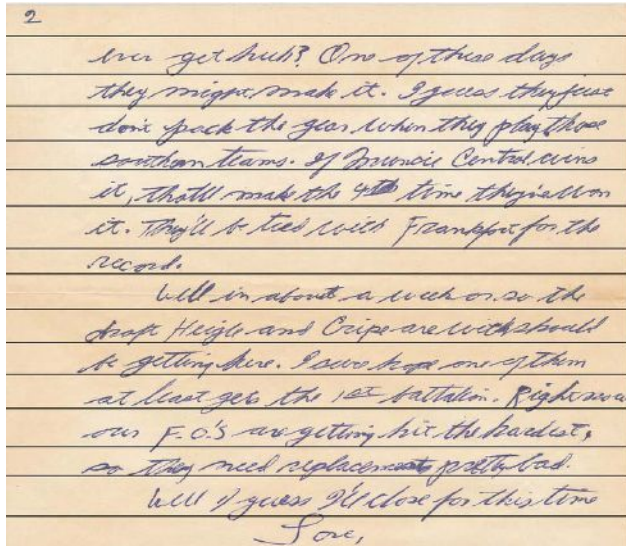 2
ever get huh? One of these days
they might make it. I guess they just
don't pack the gear when they play those
southern teams. If Muncie Central wins
it, thatll make the 4th time they've won
it. They'll be tied with Frankfort for the
record.
Well in about a week or so the
draft Heigle and Cripe are with should
be getting here. I sure hope one of them
at least gets the 1st battalion. Right now
our F.O.'S are getting hit the hardest,
so they need replacements pretty bad.
Well I guess I'll close for this time
Love,